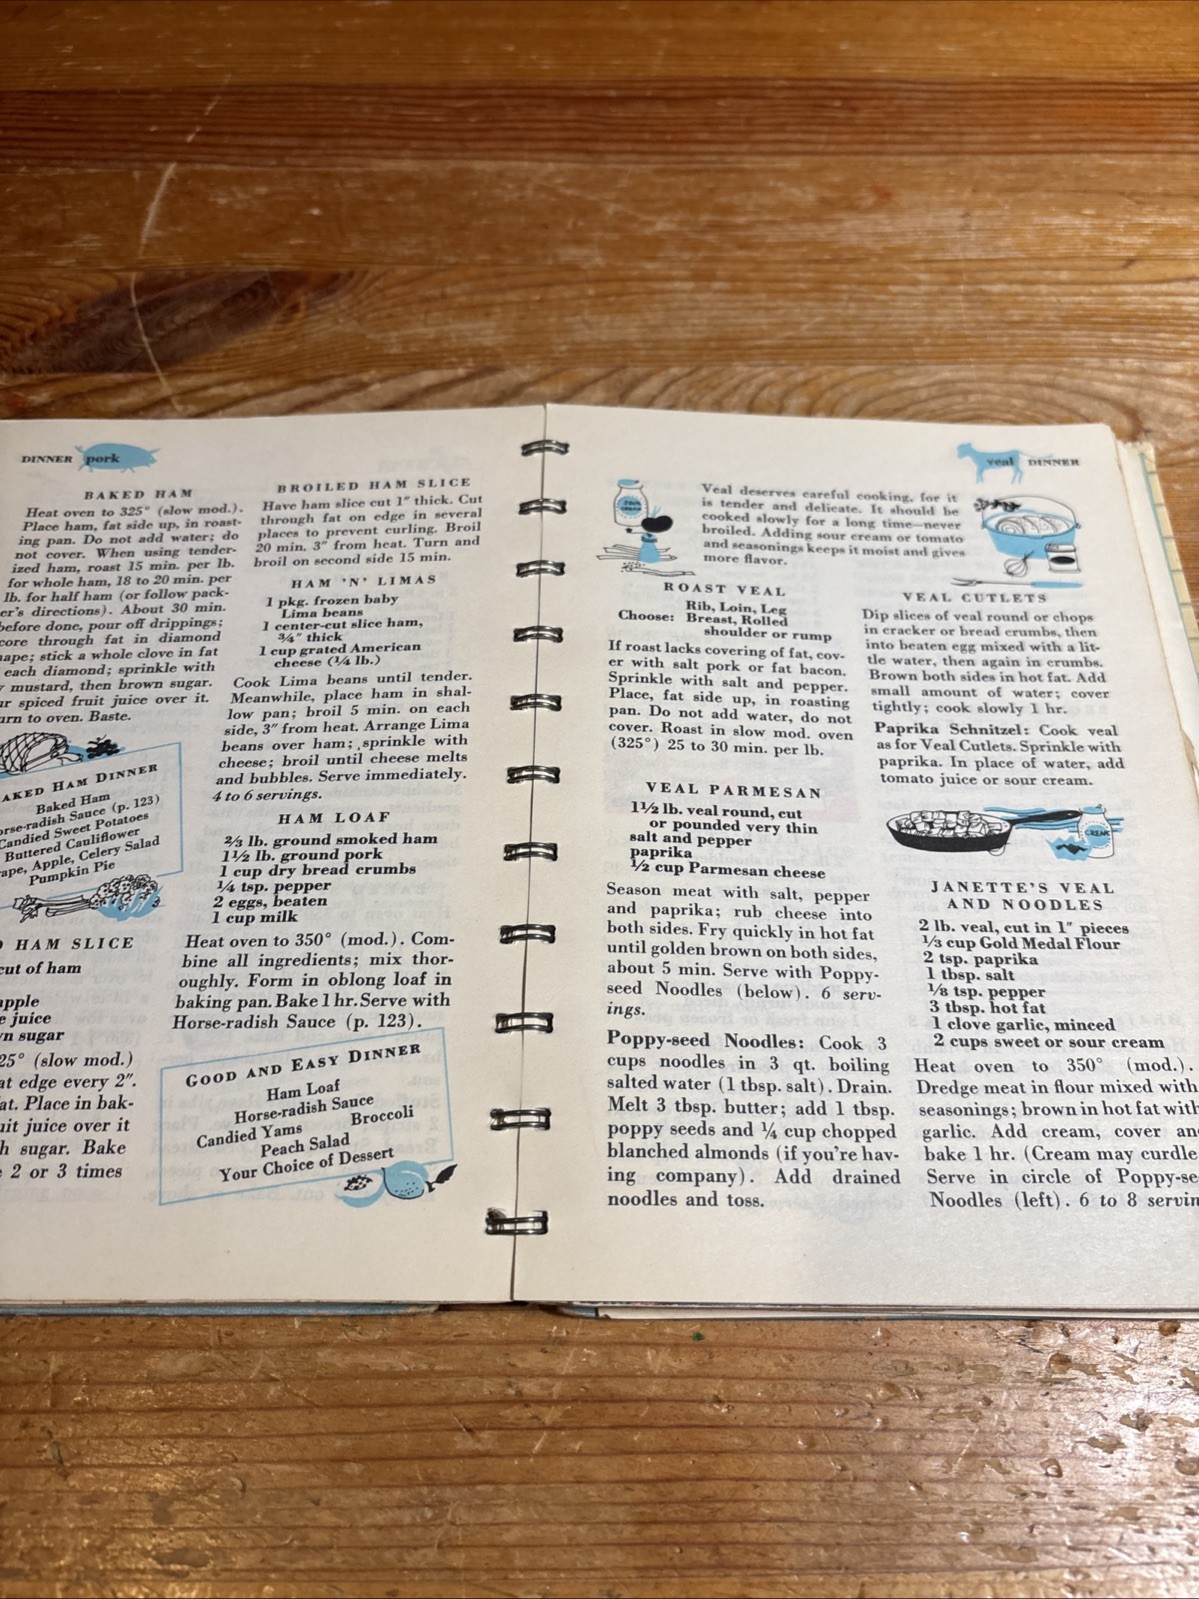 DINNER pork
BAKED HAM
Heat oven to 325° (slow mod.).
Place ham, fat side up, in roast-
ing pan. Do not add water; do
not cover. When using tender-
ized ham, roast 15 min. per lb.
for whole ham, 18 to 20 min. per
lb. for half ham (or follow pack-
er's directions). About 30 min.
before done, pour off drippings;
core through fat in diamond
ape; stick a whole clove in fat
each diamond; sprinkle with
mustard, then brown sugar.
ur spiced fruit juice over it.
urn to oven. Baste.
AKED HAM DINNER
Baked Ham
orse-radish Sauce (p. 123)
Candied Sweet Potatoes
Buttered Cauliflower
ape, Apple, Celery Salad
Pumpkin Pie
HAM SLICE
cut of ham
apple
e juice
n sugar
25° (slow mod.)
at edge every 2".
at. Place in bak-
uit juice over it
h sugar. Bake
2 or 3 times
BROILED HAM SLICE
Have ham slice cut 1" thick. Cut
through fat on edge in several
places to prevent curling. Broil
20 min. 3" from heat. Turn and
broil on second side 15 min.
HAM 'N' LIMAS
1 pkg. frozen baby
Lima beans
1 center-cut slice ham,
¾" thick
1 cup grated American
cheese (¼ lb.)
Cook Lima beans until tender.
Meanwhile, place ham in shal-
low pan; broil 5 min. on each
side, 3" from heat. Arrange Lima
beans over ham; sprinkle with
cheese; broil until cheese melts
and bubbles. Serve immediately.
4 to 6 servings.
HAM LOAF
⅔ lb. ground smoked ham
1½ lb. ground pork
1 cup dry bread crumbs
¼ tsp. pepper
2 eggs, beaten
1 cup milk
Heat oven to 350° (mod.). Com-
bine all ingredients; mix thor-
oughly. Form in oblong loaf in
baking pan. Bake 1 hr. Serve with
Horse-radish Sauce (p. 123).
GOOD AND EASY DINNER
Ham Loaf
Horse-radish Sauce
Candied Yams Broccoli
Peach Salad
Your Choice of Dessert
veal DINNER
SOUR
CREAM
Veal deserves careful cooking, for it
is tender and delicate. It should be
cooked slowly for a long time—never
broiled. Adding sour cream or tomato
and seasonings keeps it moist and gives
more flavor.
ROAST VEAL
Rib, Loin, Leg
Choose: Breast, Rolled
shoulder or rump
If roast lacks covering of fat, cov-
er with salt pork or fat bacon.
Sprinkle with salt and pepper.
Place, fat side up, in roasting
pan. Do not add water, do not
cover. Roast in slow mod. oven
(325°) 25 to 30 min. per lb.
VEAL PARMESAN
1½ lb. veal round, cut
or pounded very thin
salt and pepper
paprika
½ cup Parmesan cheese
Season meat with salt, pepper
and paprika; rub cheese into
both sides. Fry quickly in hot fat
until golden brown on both sides,
about 5 min. Serve with Poppy-
seed Noodles (below). 6 serv-
ings.
Poppy-seed Noodles: Cook 3
cups noodles in 3 qt. boiling
salted water (1 tbsp. salt). Drain.
Melt 3 tbsp. butter; add 1 tbsp.
poppy seeds and ¼ cup chopped
blanched almonds (if you're hav-
ing company). Add drained
noodles and toss.
VEAL CUTLETS
Dip slices of veal round or chops
in cracker or bread crumbs, then
into beaten egg mixed with a lit-
tle water, then again in crumbs.
Brown both sides in hot fat. Add
small amount of water; cover
tightly; cook slowly 1 hr.
Paprika Schnitzel: Cook veal
as for Veal Cutlets. Sprinkle with
paprika. In place of water, add
tomato juice or sour cream.
CREAM
JANETTE'S VEAL
AND NOODLES
2 lb. veal, cut in 1" pieces
⅓ cup Gold Medal Flour
2 tsp. paprika
1 tbsp. salt
⅛ tsp. pepper
3 tbsp. hot fat
1 clove garlic, minced
2 cups sweet or sour cream
Heat oven to 350° (mod.).
Dredge meat in flour mixed with
seasonings; brown in hot fat with
garlic. Add cream, cover an
bake 1 hr. (Cream may curdle
Serve in circle of Poppy-se
Noodles (left). 6 to 8 servin